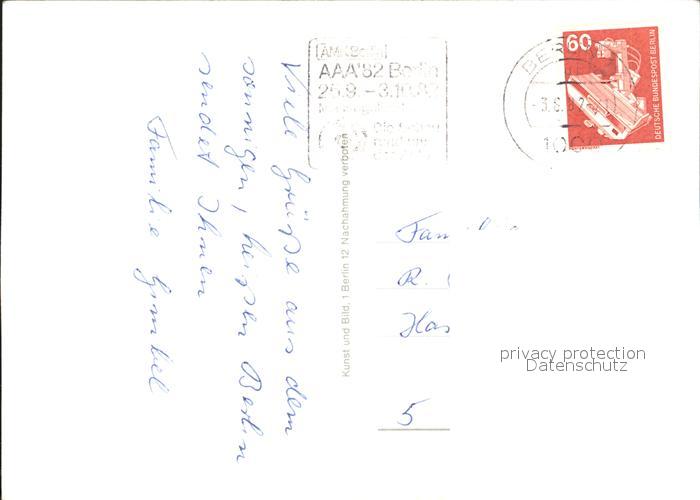 Viele Grüße aus dem
sonnigen, heißen Berlin
sendet Ihnen
Familie
Kunst und Bild, 1 Berlin 12 Nachahmung verboten
AMK Berlin
AAA'82 Berlin
25.9. – 3.10.82
60
DEUTSCHE BUNDESPOST BERLIN
Fam
R.
Has
5
privacy protection
Datenschutz